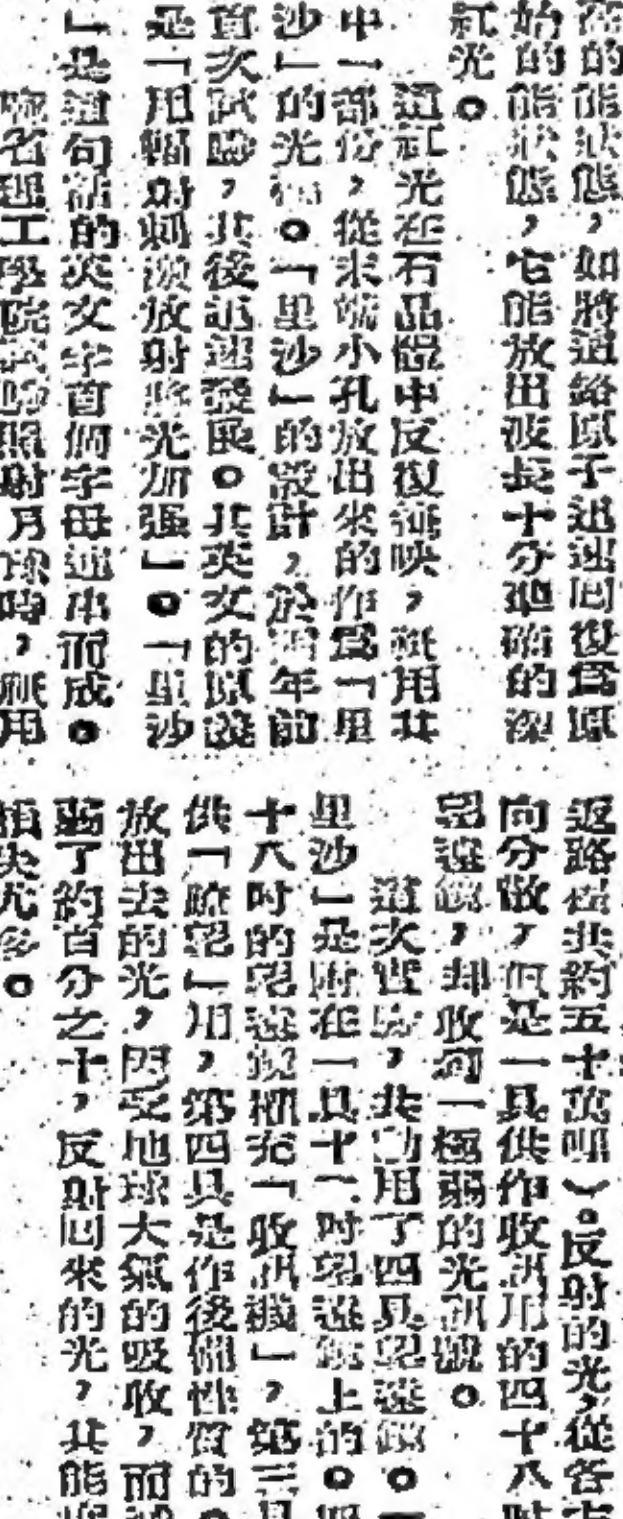 高的能狀態，如將這給原子迅速回復爲原
始的能狀態，它能放出波長十分準確的深
紅光。
這紅光在石晶體中反復輝映，祇用其
中一部份，從末端小孔放出來的作爲「里
沙」的光。「里沙」的設計，於年前
首次試驗，其後迅速發展。其英文的原義
是「用輻射刺激放射將光加强」。「里沙
」是這句話的英文字首個字母連串而成。
名理工學院試驗照射月球時，祇用
返路程共約五十萬哩）。反射的光，從各
向分散，但是一具供作收訊用的四十八吋
望遠鏡，却收到一極弱的光訊號。
這次實驗，共動用了四具望遠鏡。一
里沙」是附在一具十二吋望遠鏡上的。四
十八吋的望遠鏡擔充「收訊機」，第三具
供「瞭望」用，第四具是作後備性質的。
放出去的光，因受地球大氣的吸收，而
弱了約百分之十，反射回來的光，其能
損失尤多。